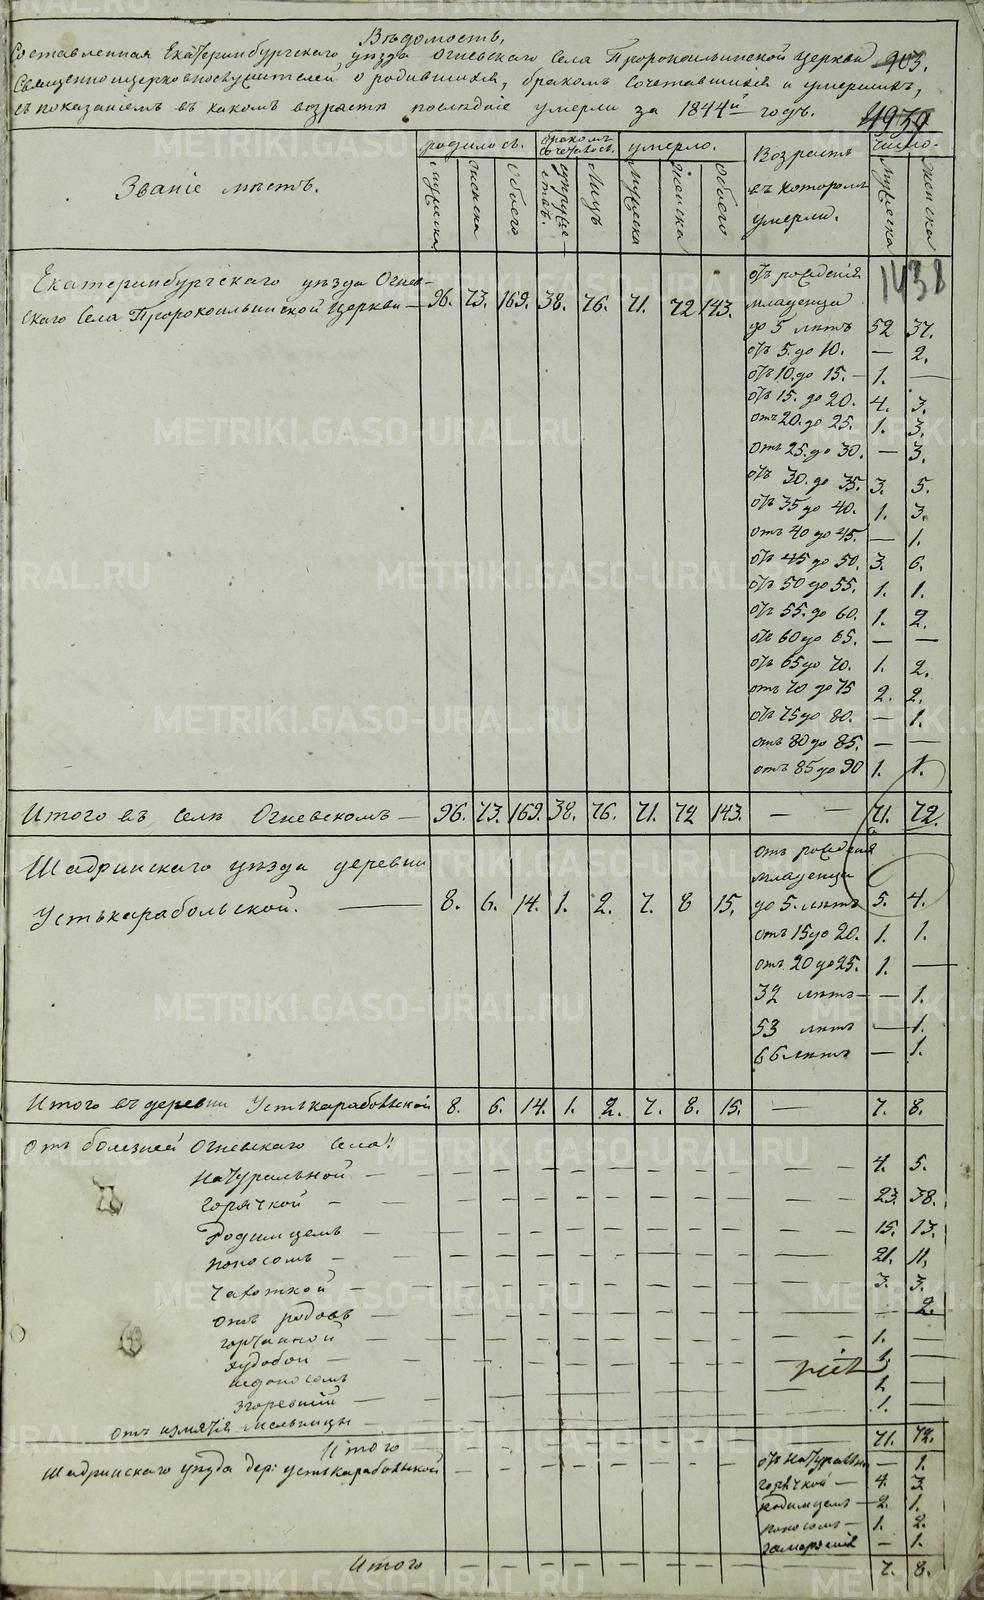 Ведомость,
Составленная Екатеринбургскаго уезда Огневскаго Села Пророкоильинской Церкви 903.
Священноцерковнослужителей о родившихся, бракомъ Сочетавшихся и умершихъ,
съ показаниемъ въ какомъ возрасте последние умерли за 1844й годъ.
4939
Звание местъ. родилось. бракомъ сочеталось. умерло. Возрастъ въ которомъ умерли. Число.
мужеска женска обоего супружествъ Лицъ мужеска женска обоего мужеска женска
1438
Екатеринбургскаго уезда Огнев-
скаго Села Пророкоильинской Церкви — 96. 73. 169. 38. 76. 71. 72 143.
отъ рождения
младенца
до 5 летъ 52 37.
отъ 5. до 10. — 2.
отъ 10. до 15. — 1. —
отъ 15. до 20. 4. 3.
отъ 20. до 25. 1. 3.
отъ 25. до 30. — 3.
отъ 30. до 35. 3. 5.
отъ 35 до 40. 1. 3.
отъ 40 до 45. — 1.
отъ 45 до 50. 3. 6.
отъ 50 до 55. 1. 1.
отъ 55. до 60. 1. 2.
отъ 60 до 65. — —
отъ 65 до 70. 1. 2.
отъ 70 до 75 2. 2.
отъ 75 до 80. — 1.
отъ 80 до 85. — —
отъ 85 до 90 1. 1.
Итого въ селе Огневскомъ — 96. 73. 169. 38. 76. 71. 72 143. — 71. 72.
Шадринскаго уезда деревни
Устькарабольской. — 8. 6. 14. 1. 2. 7. 8 15.
отъ рождения
младенца
до 5. летъ 5. 4.
отъ 15 до 20. 1. 1.
отъ 20 до 25. 1. —
32 летъ — — 1.
53 летъ — 1.
66 летъ — 1.
Итого въ деревни Устькарабольской 8. 6. 14. 1. 2. 7. 8. 15. — 7. 8.
Отъ болезней Огневскаго Села:
натуральной — 4. 5.
горячкой — 23. 38.
Родимцемъ — 15. 13.
поносомъ — 21. 11.
Чахоткой — 3. 3.
отъ родовъ — — 2.
горчанкой — 1. —
худобой — 1. —
недоносомъ 1. —
згоревший — 1. —
отъ измятия мельницы —
Итого 71. 72.
Шадринскаго уезда дер: устькарабольской — отъ натуральной — 1.
горячкой — 4. 3
родимцемъ — 2. 1.
поносомъ — 1. 2.
— 1.
Итого — 7. 8.
METRIKI.GASO-URAL.RU